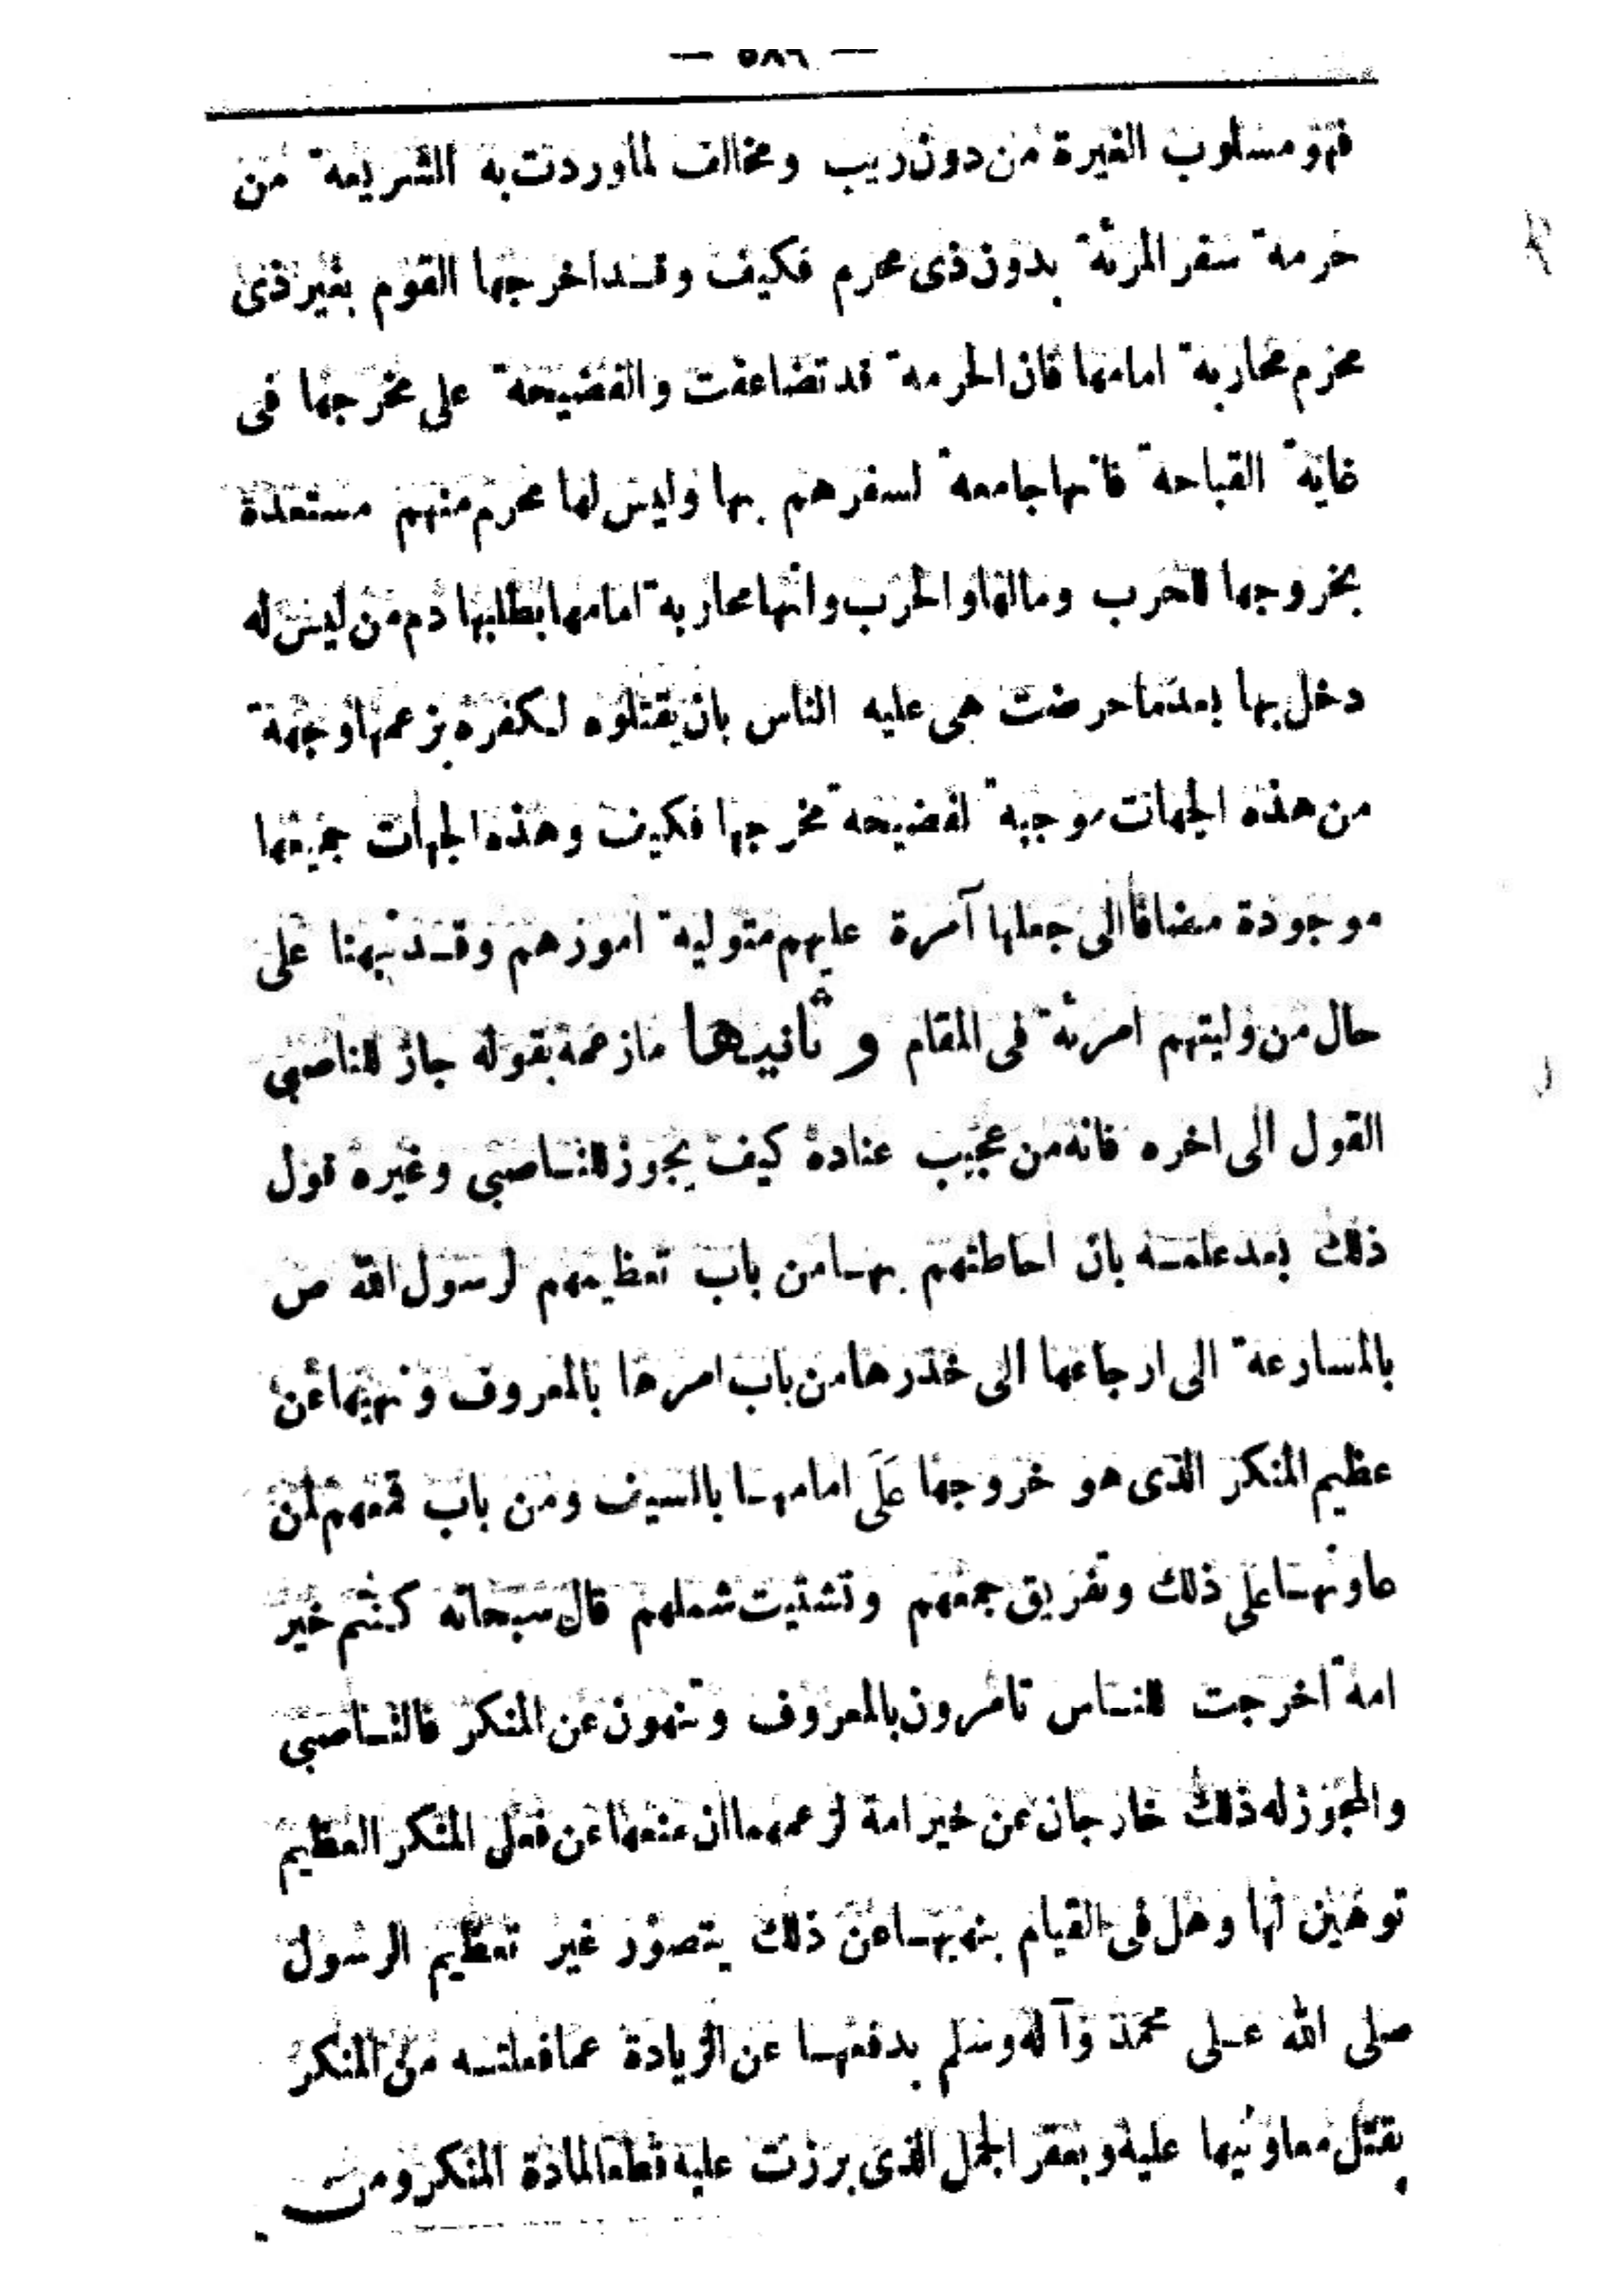 — ٥٨٦ —
فهو مسلوب الغيرة من دون ريب ومخالف لما وردت به الشريعة من
حرمة سفر المرئة بدون ذى محرم فكيف وقد اخرجها القوم بغير ذى
محرم محاربة امامها فان الحرمة قد تضاعفت والفضيحة على مخرجها فى
غاية القباحة فانها جامعة لسفرهم بها وليس لها محرم منهم مستعدة
بخروجها للحرب ومالها والحرب وانها محاربة امامها بطلبها دم من ليس له
دخل بها بعدما حرضت هى عليه الناس بان يقتلوه لكفره بزعمها وجهة
من هذه الجهات موجبة لفضيحة مخرجها فكيف وهذه الجهات جميعها
موجودة مضافا الى جعلها آمرة عليهم متولية امورهم وقد نبهنا على
حال من وليتهم امرئة فى المقام و ثانيها مازعمه بقوله جاز للناصبى
القول الى اخره فانه من عجيب عناده كيف يجوز للناصبى وغيره قول
ذلك بعد علمه بان احاطتهم بها من باب تعظيمهم لرسول الله ص
بالمسارعة الى ارجاعها الى خدرها من باب امرها بالمعروف ونهيها عن
عظيم المنكر الذى هو خروجها على امامها بالسيف ومن باب قمعهم لمن
عاونها على ذلك وتفريق جمعهم وتشتيت شملهم قال سبحانه كنتم خير
امة اخرجت للناس تامرون بالمعروف وتنهون عن المنكر فالناصبى
والمجوز له ذلك خارجان عن خير امة لزعمهما ان منعها عن فعل المنكر العظيم
توهين لها وهل فى القيام بنهيها عن ذلك يتصور غير تعظيم الرسول
صلى الله على محمد وآله وسلم بدفعها عن الزيادة عما فعلته من المنكر
بقتل معاونيها عليه وبعقر الجمل الذى برزت عليه قطعا لمادة المنكر ومن